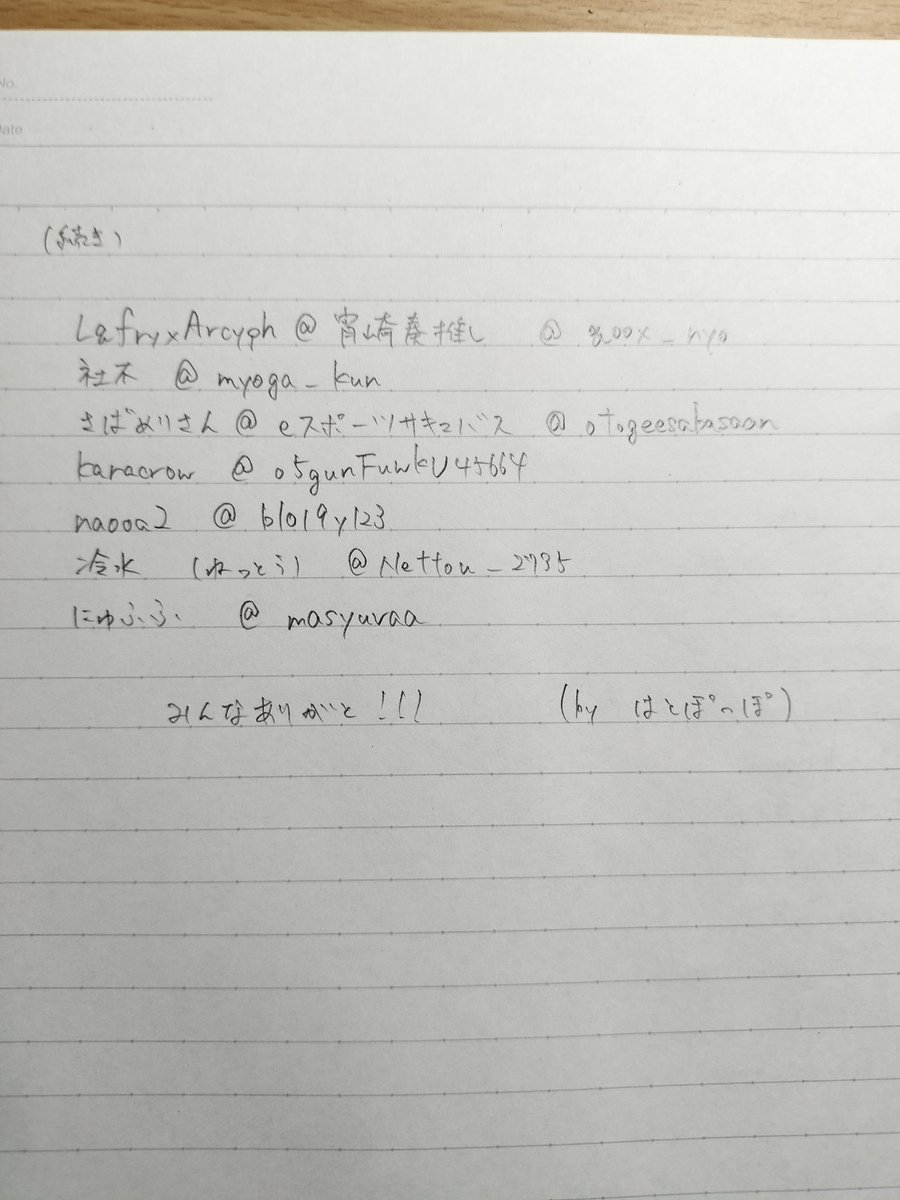 No.
Date
(続き)
Lafry×Arcyph @ 宵崎奏推し @
社不 @ myoga_kun
さばめりさん @ eスポーツサキュバス @ otogeesabasaan
karacrow @ o5gunFuwkU45664
naooa2 @ blo19y123
冷水 (ねっとう) @ Nettou_2735
にゅふふ @ masyuraa
みんなありがと!!! (by はとぽっぽ)